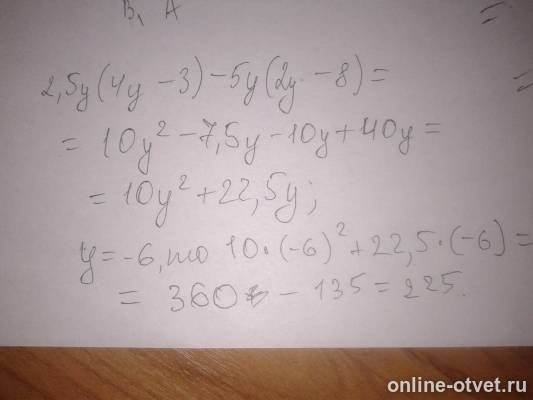 В, А
=
2,5y(4y-3)-5y(2y-8)=
=
= 10y²-7,5y-10y+40y=
= 10y²+22,5y;
y=-6, то 10·(-6)²+22,5·(-6)=
= 360 - 135 = 225.
online-otvet.ru